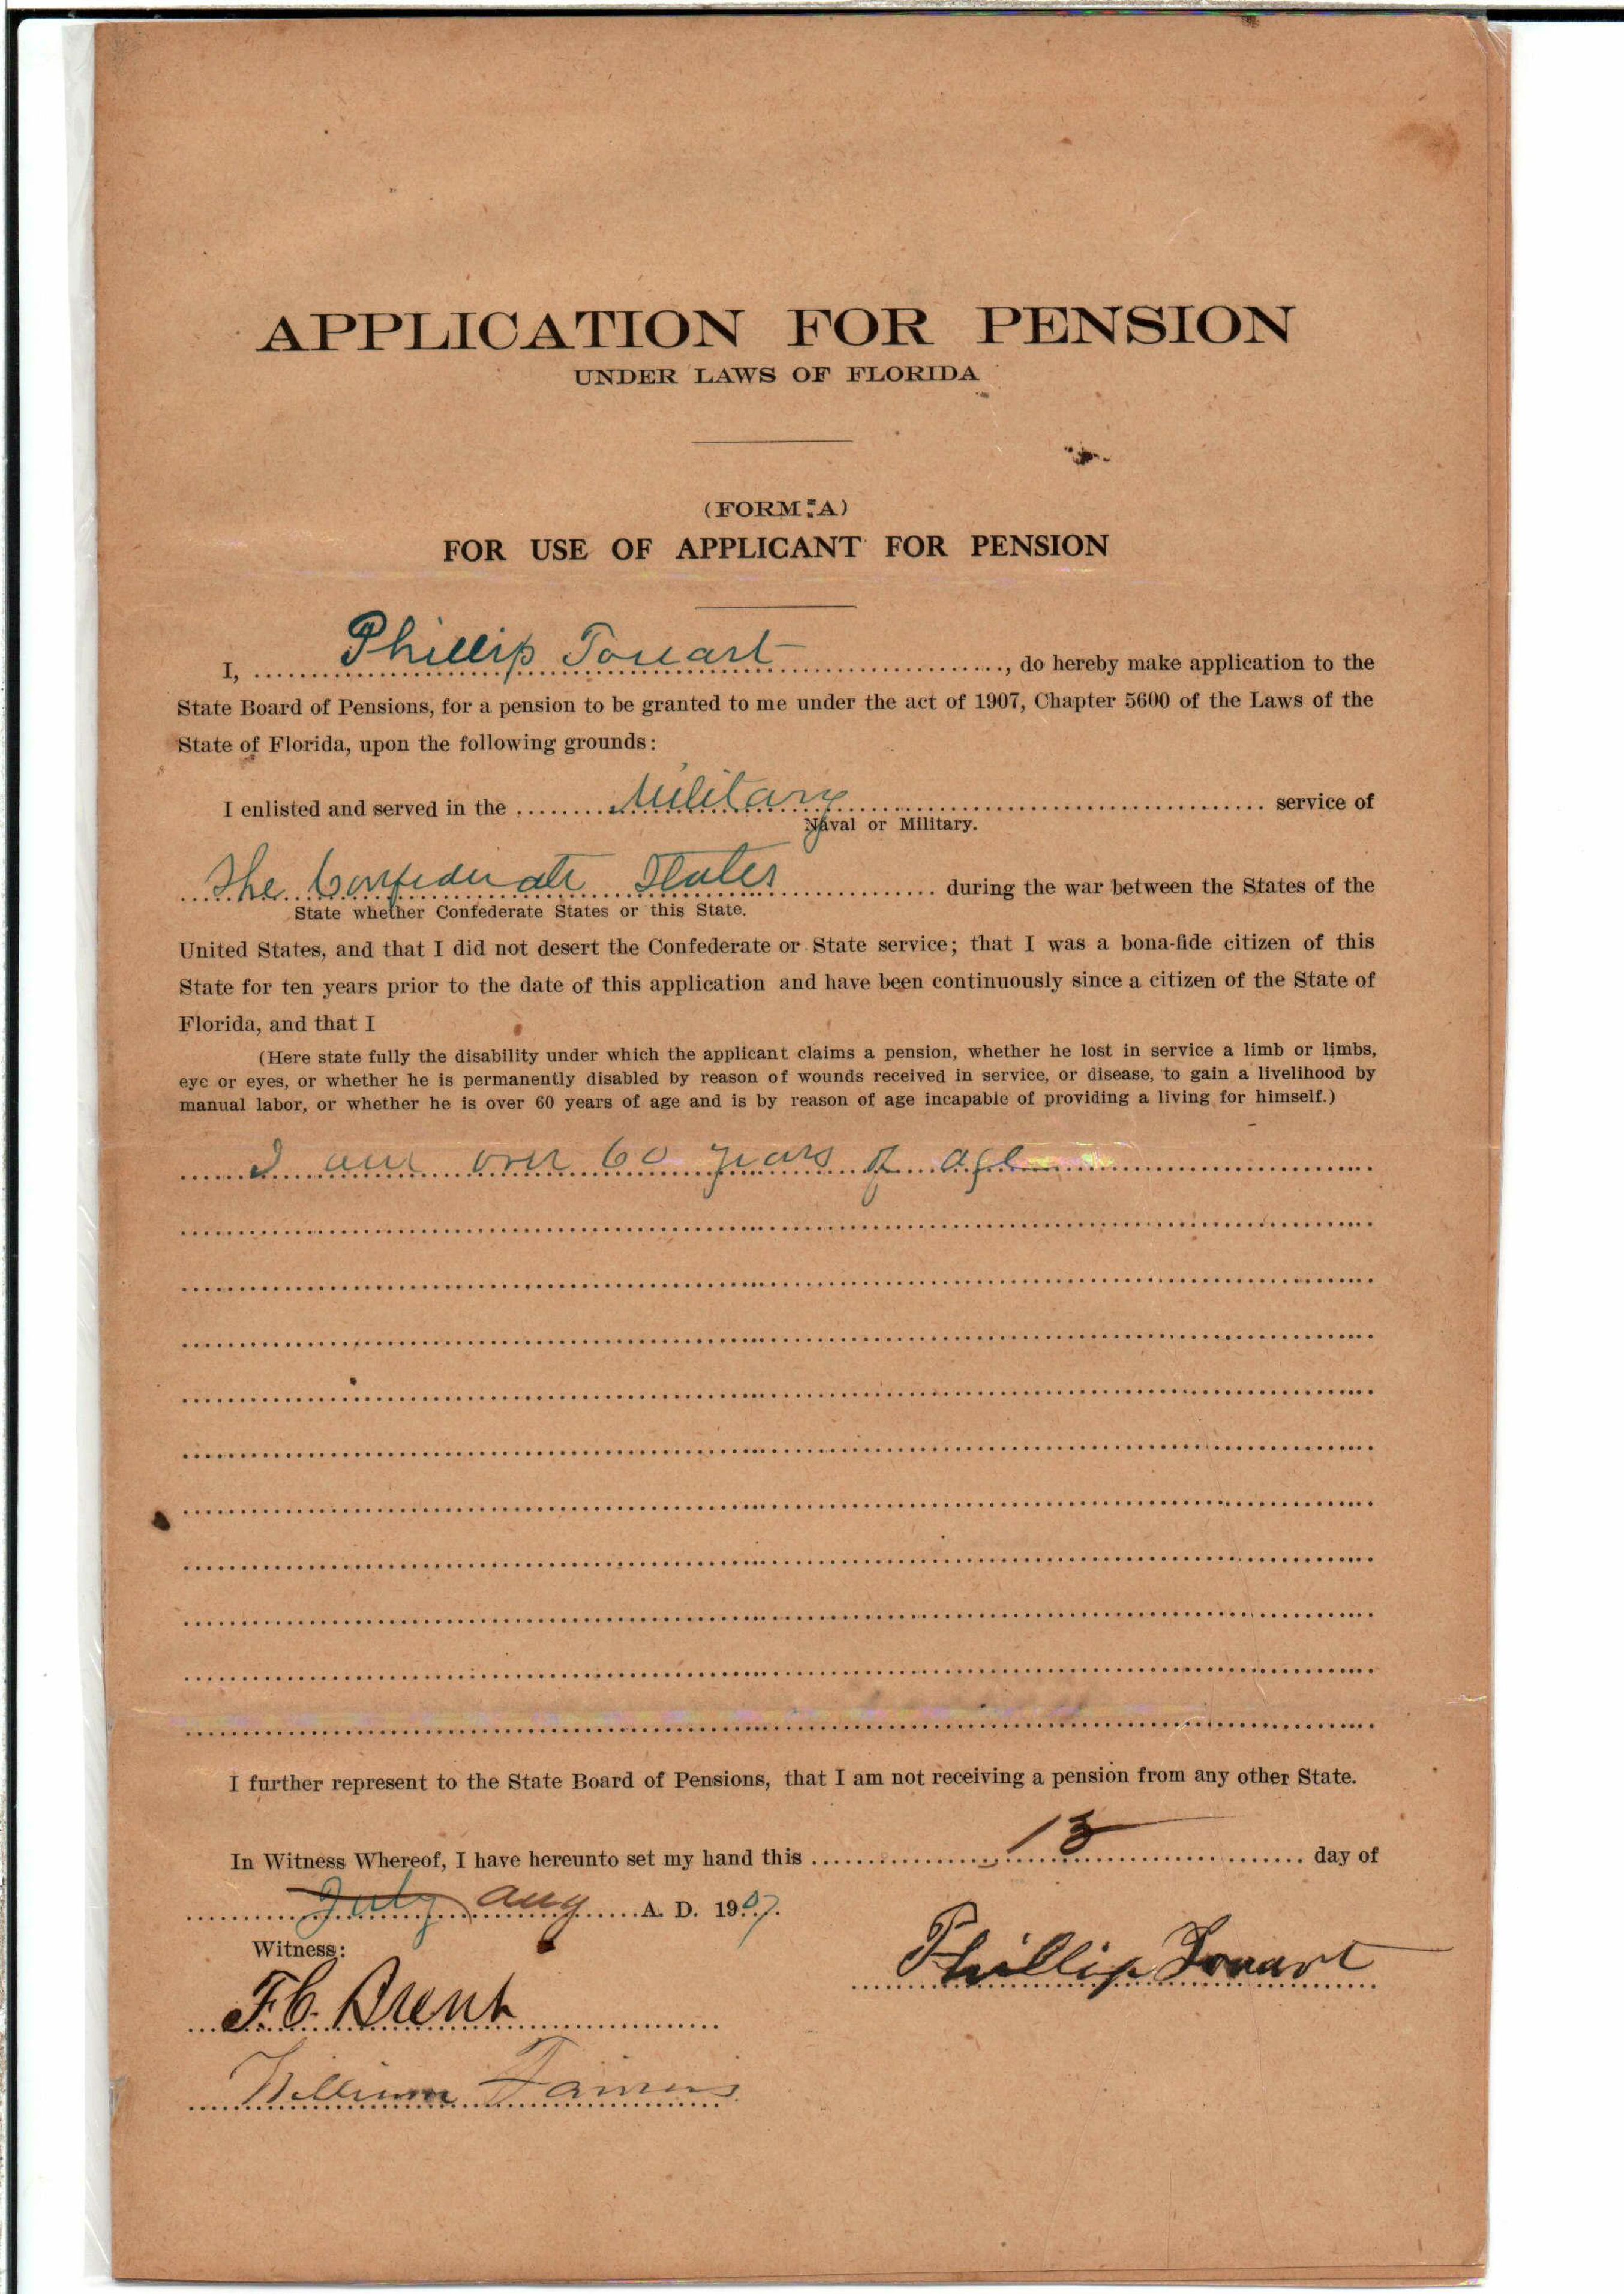 APPLICATION FOR PENSION
UNDER LAWS OF FLORIDA
(FORM=A)
FOR USE OF APPLICANT FOR PENSION
I, Phillip Touart, do hereby make application to the
State Board of Pensions, for a pension to be granted to me under the act of 1907, Chapter 5600 of the Laws of the
State of Florida, upon the following grounds:
I enlisted and served in the Military service of
Naval or Military.
The Confederate States during the war between the States of the
State whether Confederate States or this State.
United States, and that I did not desert the Confederate or State service; that I was a bona-fide citizen of this
State for ten years prior to the date of this application and have been continuously since a citizen of the State of
Florida, and that I
(Here state fully the disability under which the applicant claims a pension, whether he lost in service a limb or limbs,
eye or eyes, or whether he is permanently disabled by reason of wounds received in service, or disease, to gain a livelihood by
manual labor, or whether he is over 60 years of age and is by reason of age incapable of providing a living for himself.)
I am over 60 years of age
I further represent to the State Board of Pensions, that I am not receiving a pension from any other State.
In Witness Whereof, I have hereunto set my hand this 13 day of
July Aug A. D. 1907.
Witness:
Phillip Touart
F.C. Brent
William